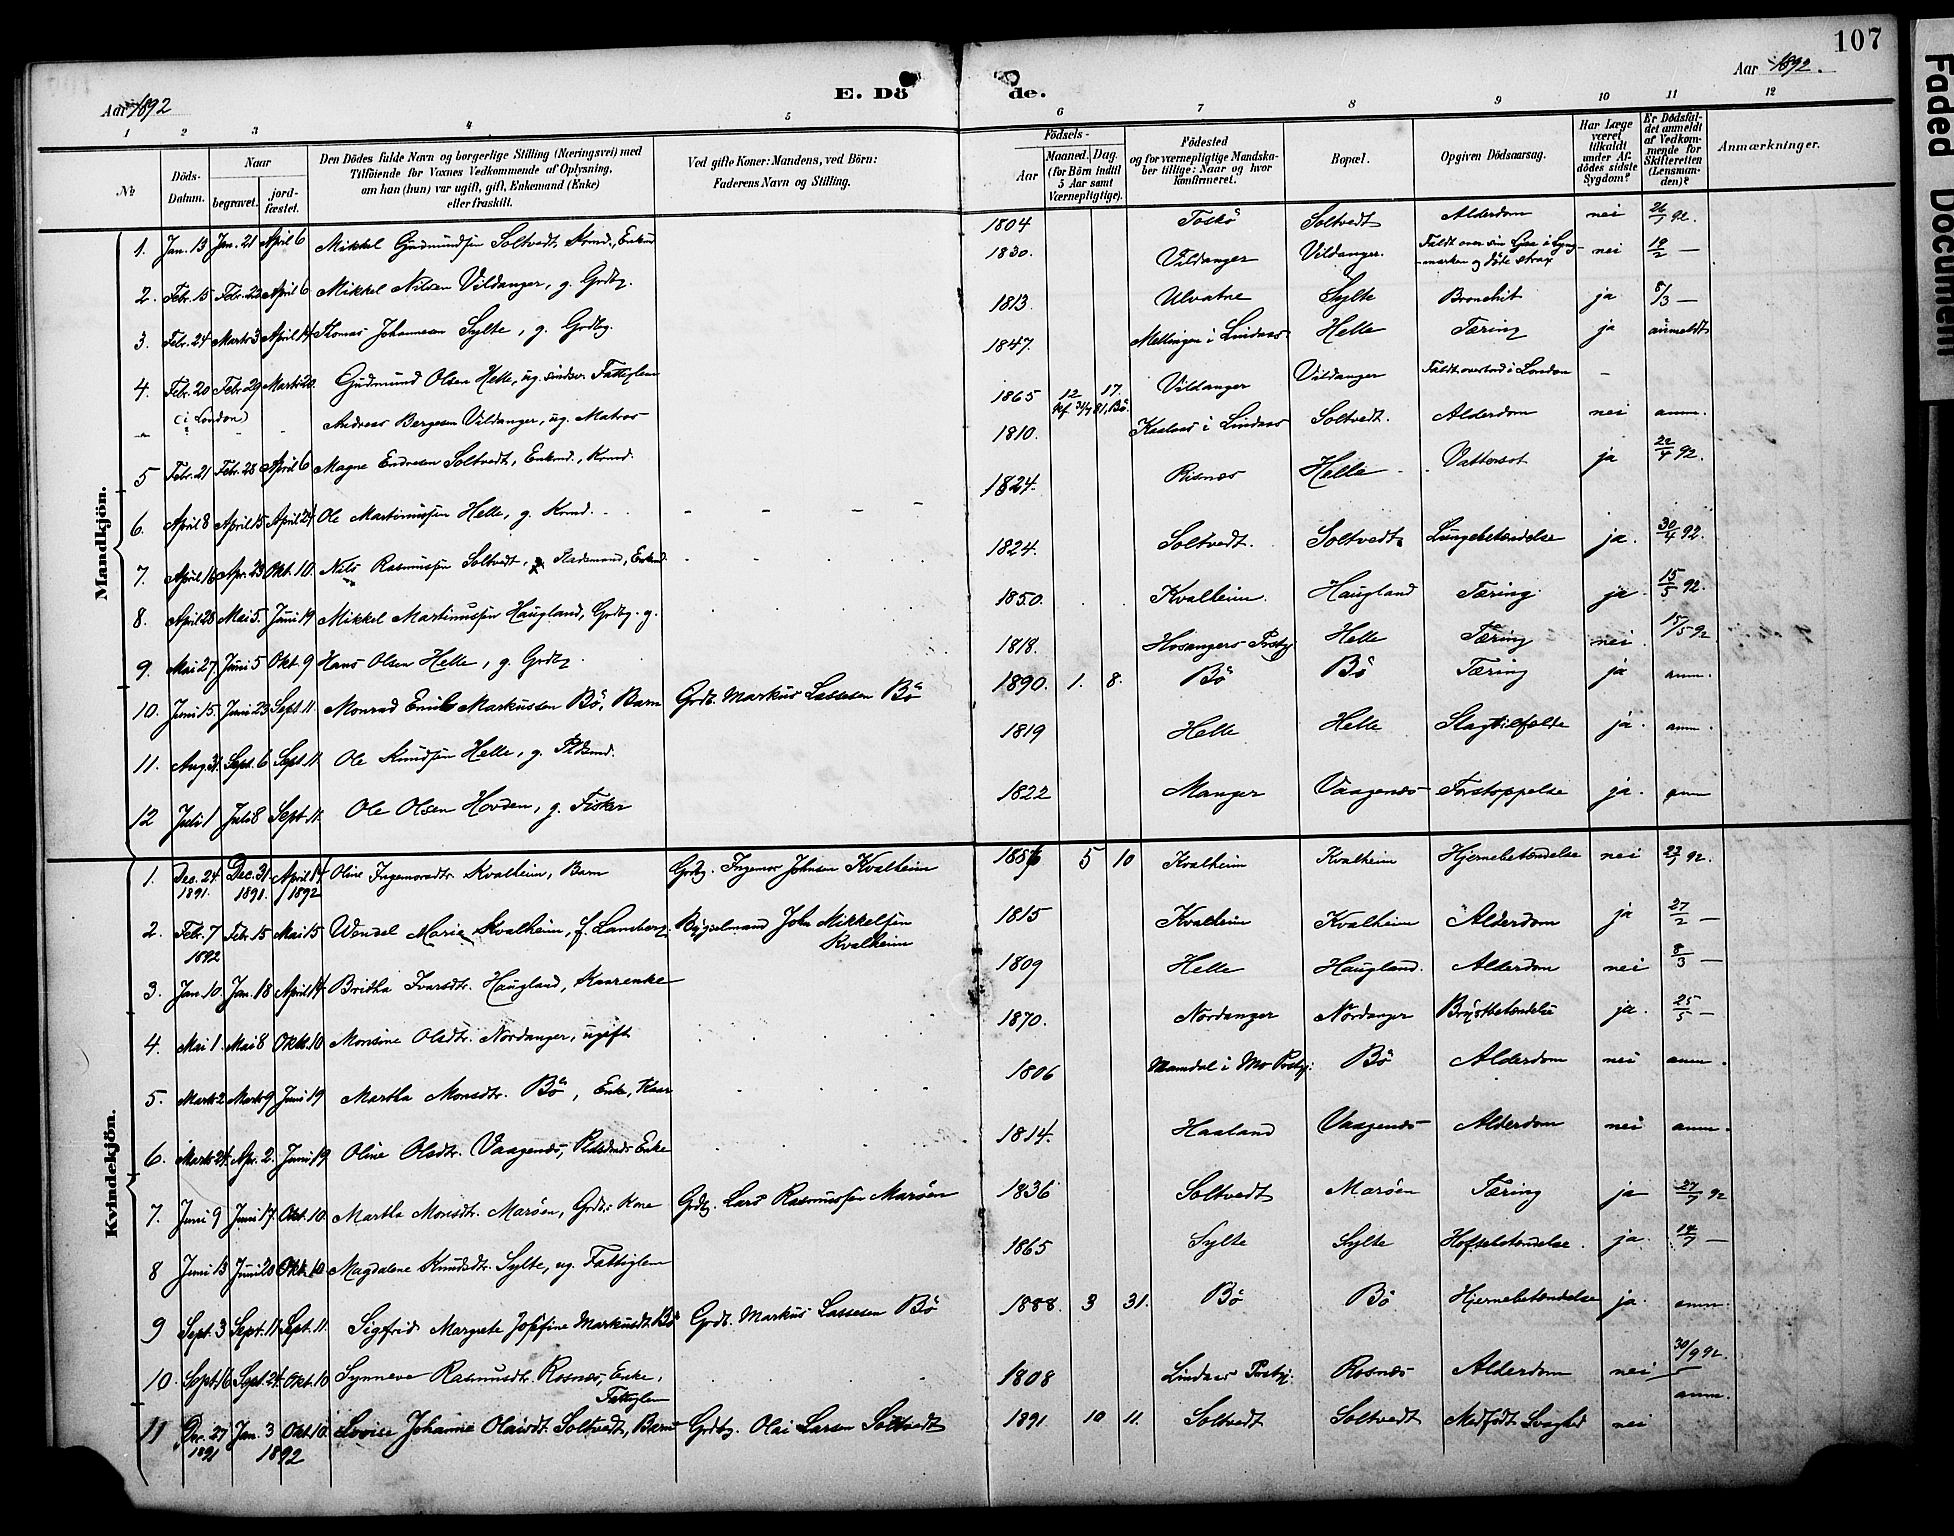 107
Faded Document
Aar 1892
E. Dö de.
Aar 1892.
1 2 3 4 5 6 7 8 9 10 11 12
No
Döds-Datum.
Naar
begravet.
jord-fæstet.
Den Dödes fulde Navn og borgerlige Stilling (Næringsvei) med
Tilföiende for Voxnes Vedkommende af Oplysning,
om han (hun) var ugift, gift, Enkemand (Enke)
eller fraskilt.
Ved gifte Koner: Mandens, ved Börn:
Faderens Navn og Stilling.
Födsels-
Aar
Maaned. Dag.
(for Börn indtil
5 Aar samt
Værnepligtige).
Födested
og for værnepligtige Mandska-
ber tillige: Naar og hvor
konfirmeret.
Bopæl.
Opgiven Dödsaarsag.
Har Læge
været
tilkaldt
under Af-
dödes sidste
Sygdom?
Er Dödsfal-
det anmeldt
af Vedkom-
mende for
Skifteretten
(Lensman-
den)?
Anmærkninger.
Mandkjön.
1. Jan. 13 Jan. 21 April 6 Mikkel Gudmundsen Soltvedt, Krmd., Enkmd 1804 Toskö Soltvedt Alderdom nei 26/1 92.
2. Febr. 15 Febr. 23 April 6 Mikkel Nilsen Vildanger, g. Grdbg. 1830. Vildanger Vildanger. Faldt over sin Ljaa i Lyng-
marken og döde strax nei 19/2 —
3. Febr. 24 Marts 3 April 14 Thomas Johannesen Sylte, g. Grdbg. 1813 Ulvatne Sylte Bronchit ja 8/3 —
4. Febr. 20 Febr. 29 Marts 20. Gudmund Olsen Helle, ug. sindssv. Fattiglem 1847. Mellingen i Lindaas Helle Tæring ja anmeldt
(i London) Andreas Bergesen Vildanger, ug. Matros 1865 12 17 Vildanger Vildanger Faldt overbord i London -
81, Bö.
5 Febr. 21 Febr. 28 April 6 Magne Endresen Soltvedt, Enkmd., Krmd. 1810. Kaalaas i Lindaas Soltvedt. Alderdom nei anm.
6. April 8 April 15 April 24 Ole Martinussen Helle, g. Krmd. 1824. Risnæs Helle Vattersot ja 22/4 92.
7. April 16 Apr. 23 Okt. 10. Nils Rasmussen Soltvedt, Pladsmand, Enkmd. 1824. Soltvedt. Soltvedt Lungebetændelse ja. 30/4 92.
8. April 28 Mai 5. Juni 19 Mikkel Martinussen Haugland, Grdbg. g. 1850. Kvalheim. Haugland Tæring ja 15/5 92.
9. Mai 27 Juni 5 Okt. 9 Hans Olsen Helle, g. Grdbg. 1818. Hosangers Prstgj Helle Tæring nei 15/5 92
10. Juni 15 Juni 23 Sept. 11. Monrad Emil Markussen Bö, Barn Grdb. Markus Lassesen Bö 1890. 1. 8. Bö Bö Tæring ja anm.
11. Aug. 31. Sept. 6 Sept. 11. Ole Knudsen Helle, g. Pldsmd. 1819 Helle Helle Slagtilfælde ja. anm.
12 Juli 1 Juli 8 Sept. 11. Ole Olsen Hovden, g. Fisker 1822 Manger Vaagenæs Forstoppelse ja. anm
Kvindekjön.
1. Dec. 24 Dec. 31. April 14 Oline Ingemorsdtr. Kvalheim, Barn Grdbg. Ingemor Johnsen Kvalheim 1886 5 10 Kvalheim Kvalheim Hjernebetændelse nei 23/1 92.
1891. 1891. 1892
2. Febr. 7 Febr. 15 Mai 15 Wendel Maria Kvalheim, f. Lamberg. Bygselmand John Mikkelsen
Kvalheim 1815 Kvalheim Kvalheim Alderdom ja 27/2 —
1892
3. Jan. 10 Jan. 18 April 14 Britha Ivarsdtr. Haugland, Kaarenke 1809 Helle Haugland. Alderdom nei 8/3 —
4. Mai 1. Mai 8 Okt. 10 Monsine Olsdtr. Nordanger, ugift 1870. Nordanger Nordanger Brystbetændelse ja. 25/5 —
5. Marts 2 Marts 9 Juni 19 Martha Monsdtr. Bö, Enke, Kaar 1806 Mamdal i Mo Prstgj. Bö Alderdom nei anm.
6. Marts 24. Apr. 2. Juni 19 Oline Olsdtr. Vaagenæs, Pladsmds Enke 1814. Haaland Vaagenæs Alderdom nei anm.
7. Juni 9 Juni 17. Okt. 10. Martha Monsdtr. Maröen, Grdbs Kone Grdbg. Lars Rasmussen Maröen 1836 Soltvedt Maröen Tæring ja 27/7 92
8 Juni 13 Juni 20 Okt. 10 Magdalene Knudsdtr. Sylte, ug. Fattiglem 1865 Sylte Sylte Hoftebetændelse. ja. 14/7 —
9 Sept. 3 Sept. 11 Sept. 11. Sigfrid Margrete Josefine Markusdt. Bö Grdb. Markus Lassesen Bö 1888. 3 31. Bö Bö Hjernebetændelse ja. anm.
10. Sept. 16 Sept. 24. Okt. 10 Synneve Rasmusdtr. Rosnæs, Enke,
Fattiglem 1808 Lindaas Prstgj. Rosnæs Alderdom nei 30/9 92.
11 Dec. 27 Jan. 3 Okt. 10. Lovise Johanne Olaisdt. Soltvedt, Barn Grdbg. Olai Larsen Soltvedt 1891. 10 11. Soltvedt Soltvedt Medfödt Svaghed nei anm.
1891 1892